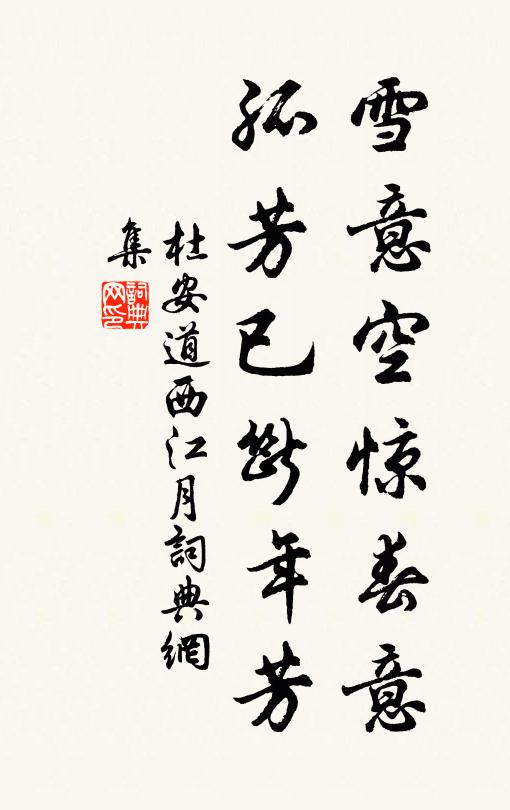 雪意空惊春意
孤芳已斷年芳
杜安道西江月詞典網
集
詞典
网印